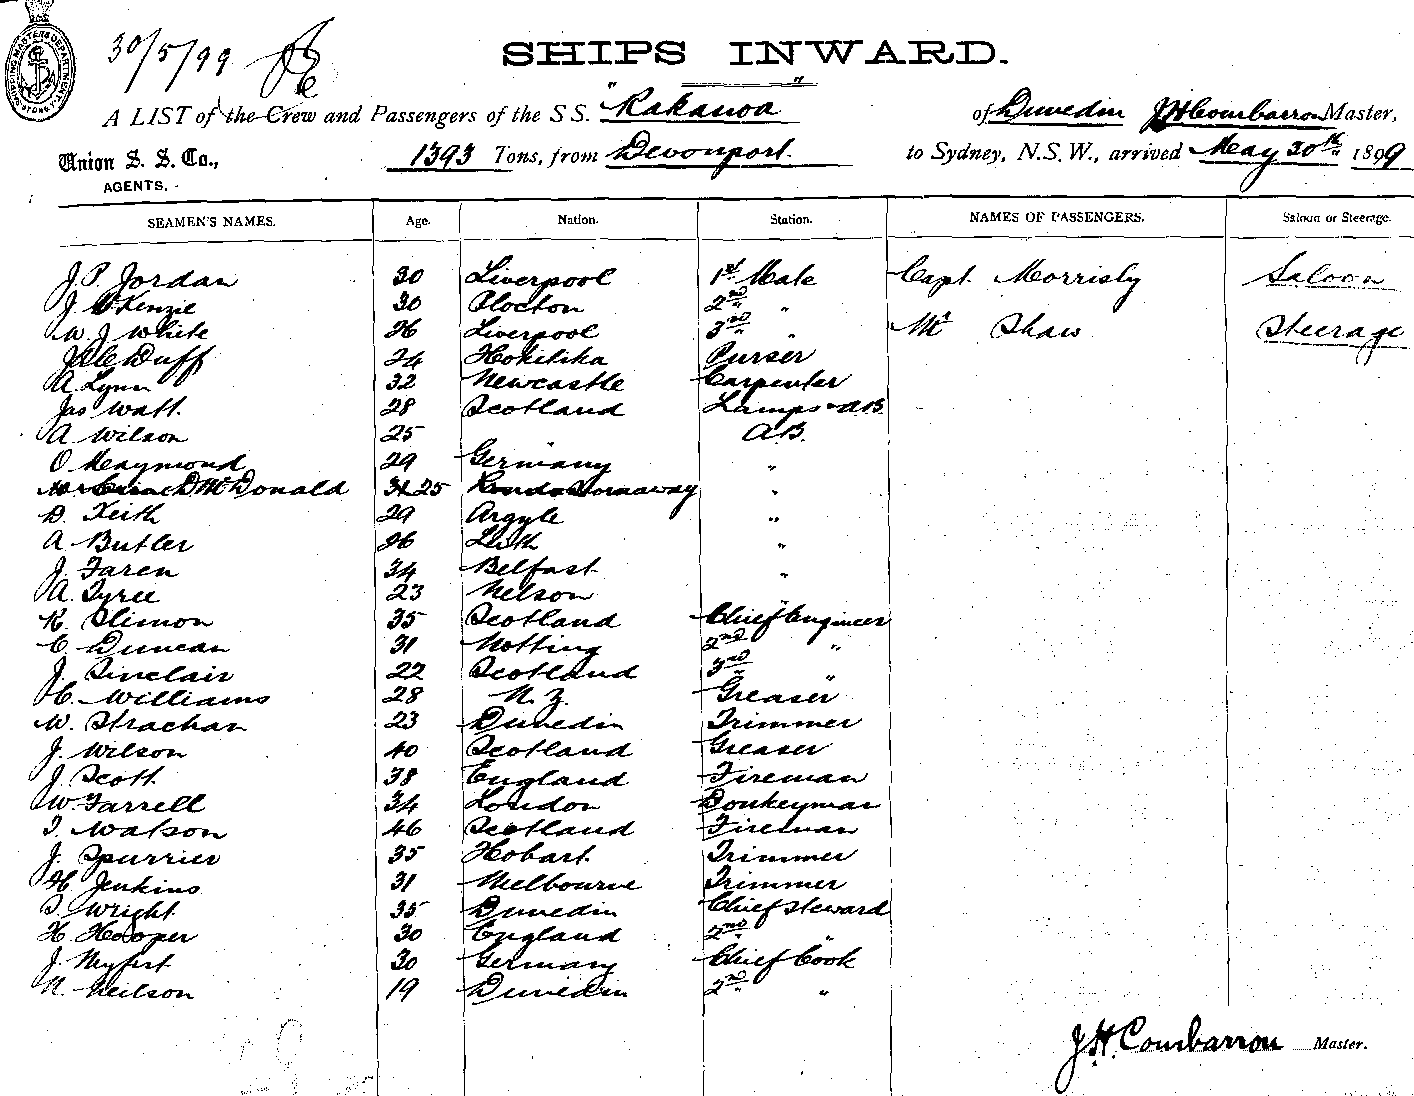 SHIPPING MASTERS DEPARTMENT SYDNEY
30/5/99
SHIPS INWARD.
A LIST of the Crew and Passengers of the S S. "Kakanoa" of Dunedin J H Combarron Master,
Union S. S. Co., AGENTS, 1393 Tons, from Devonport. to Sydney, N.S.W., arrived May 30th 1899
SEAMEN'S NAMES. Age. Nation. Station. NAMES OF PASSENGERS. Saloon or Steerage.
J. P. Jordan 30 Liverpool 1st Mate Capt. Morrisby Saloon
J McKenzie 30 Plocton 2nd "
W J White 26 Liverpool 3rd " Mr Shaw Steerage
Duff 24 Hokitika Purser
A Lynn 32 Newcastle Carpenter
Jas Watt 28 Scotland Lamps & A.B.
A Wilson 25 " A.B.
O Maymond 29 Germany "
D McDonald 25 Stornaway "
D. Keith 29 Argyle "
A Butler 26 Leith "
J. Faren 34 Belfast "
A. Tyree 23 Nelson "
K. Slimon 35 Scotland Chief Engineer
C Duncan 31 Notting 2nd "
J. Sinclair 22 Scotland 3rd "
H. Williams 28 N. Z. Greaser
W. Strachan 23 Dunedin Trimmer
J. Wilson 40 Scotland Greaser
J. Scott 38 England Fireman
W. Farrell 34 London Donkeyman
T. Watson 46 Scotland Fireman
J. Spurrier 35 Hobart Trimmer
H Jenkins 31 Melbourne Trimmer
T. Wright 35 Dunedin Chief Steward
H. Hooper 30 England 2nd "
J. Neyfert 30 Germany Chief Cook
N. Neilson 19 Dunedin 2nd "
J. H. Combarron Master.